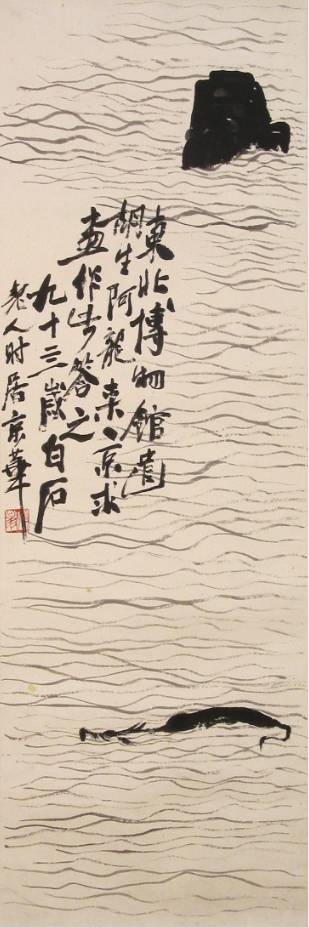 東北博物館遣
胡生阿龍来京求
畫作此答之
九十三歲白石
老人时居京華